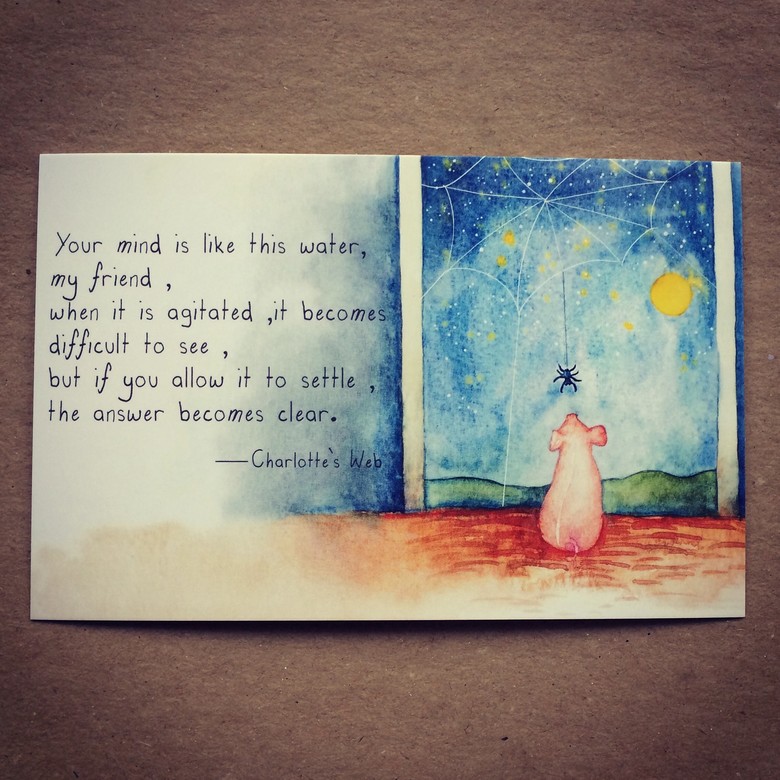 Your mind is like this water,
my friend ,
when it is agitated ,it becomes
difficult to see ,
but if you allow it to settle ,
the answer becomes clear.
—Charlotte`s Web